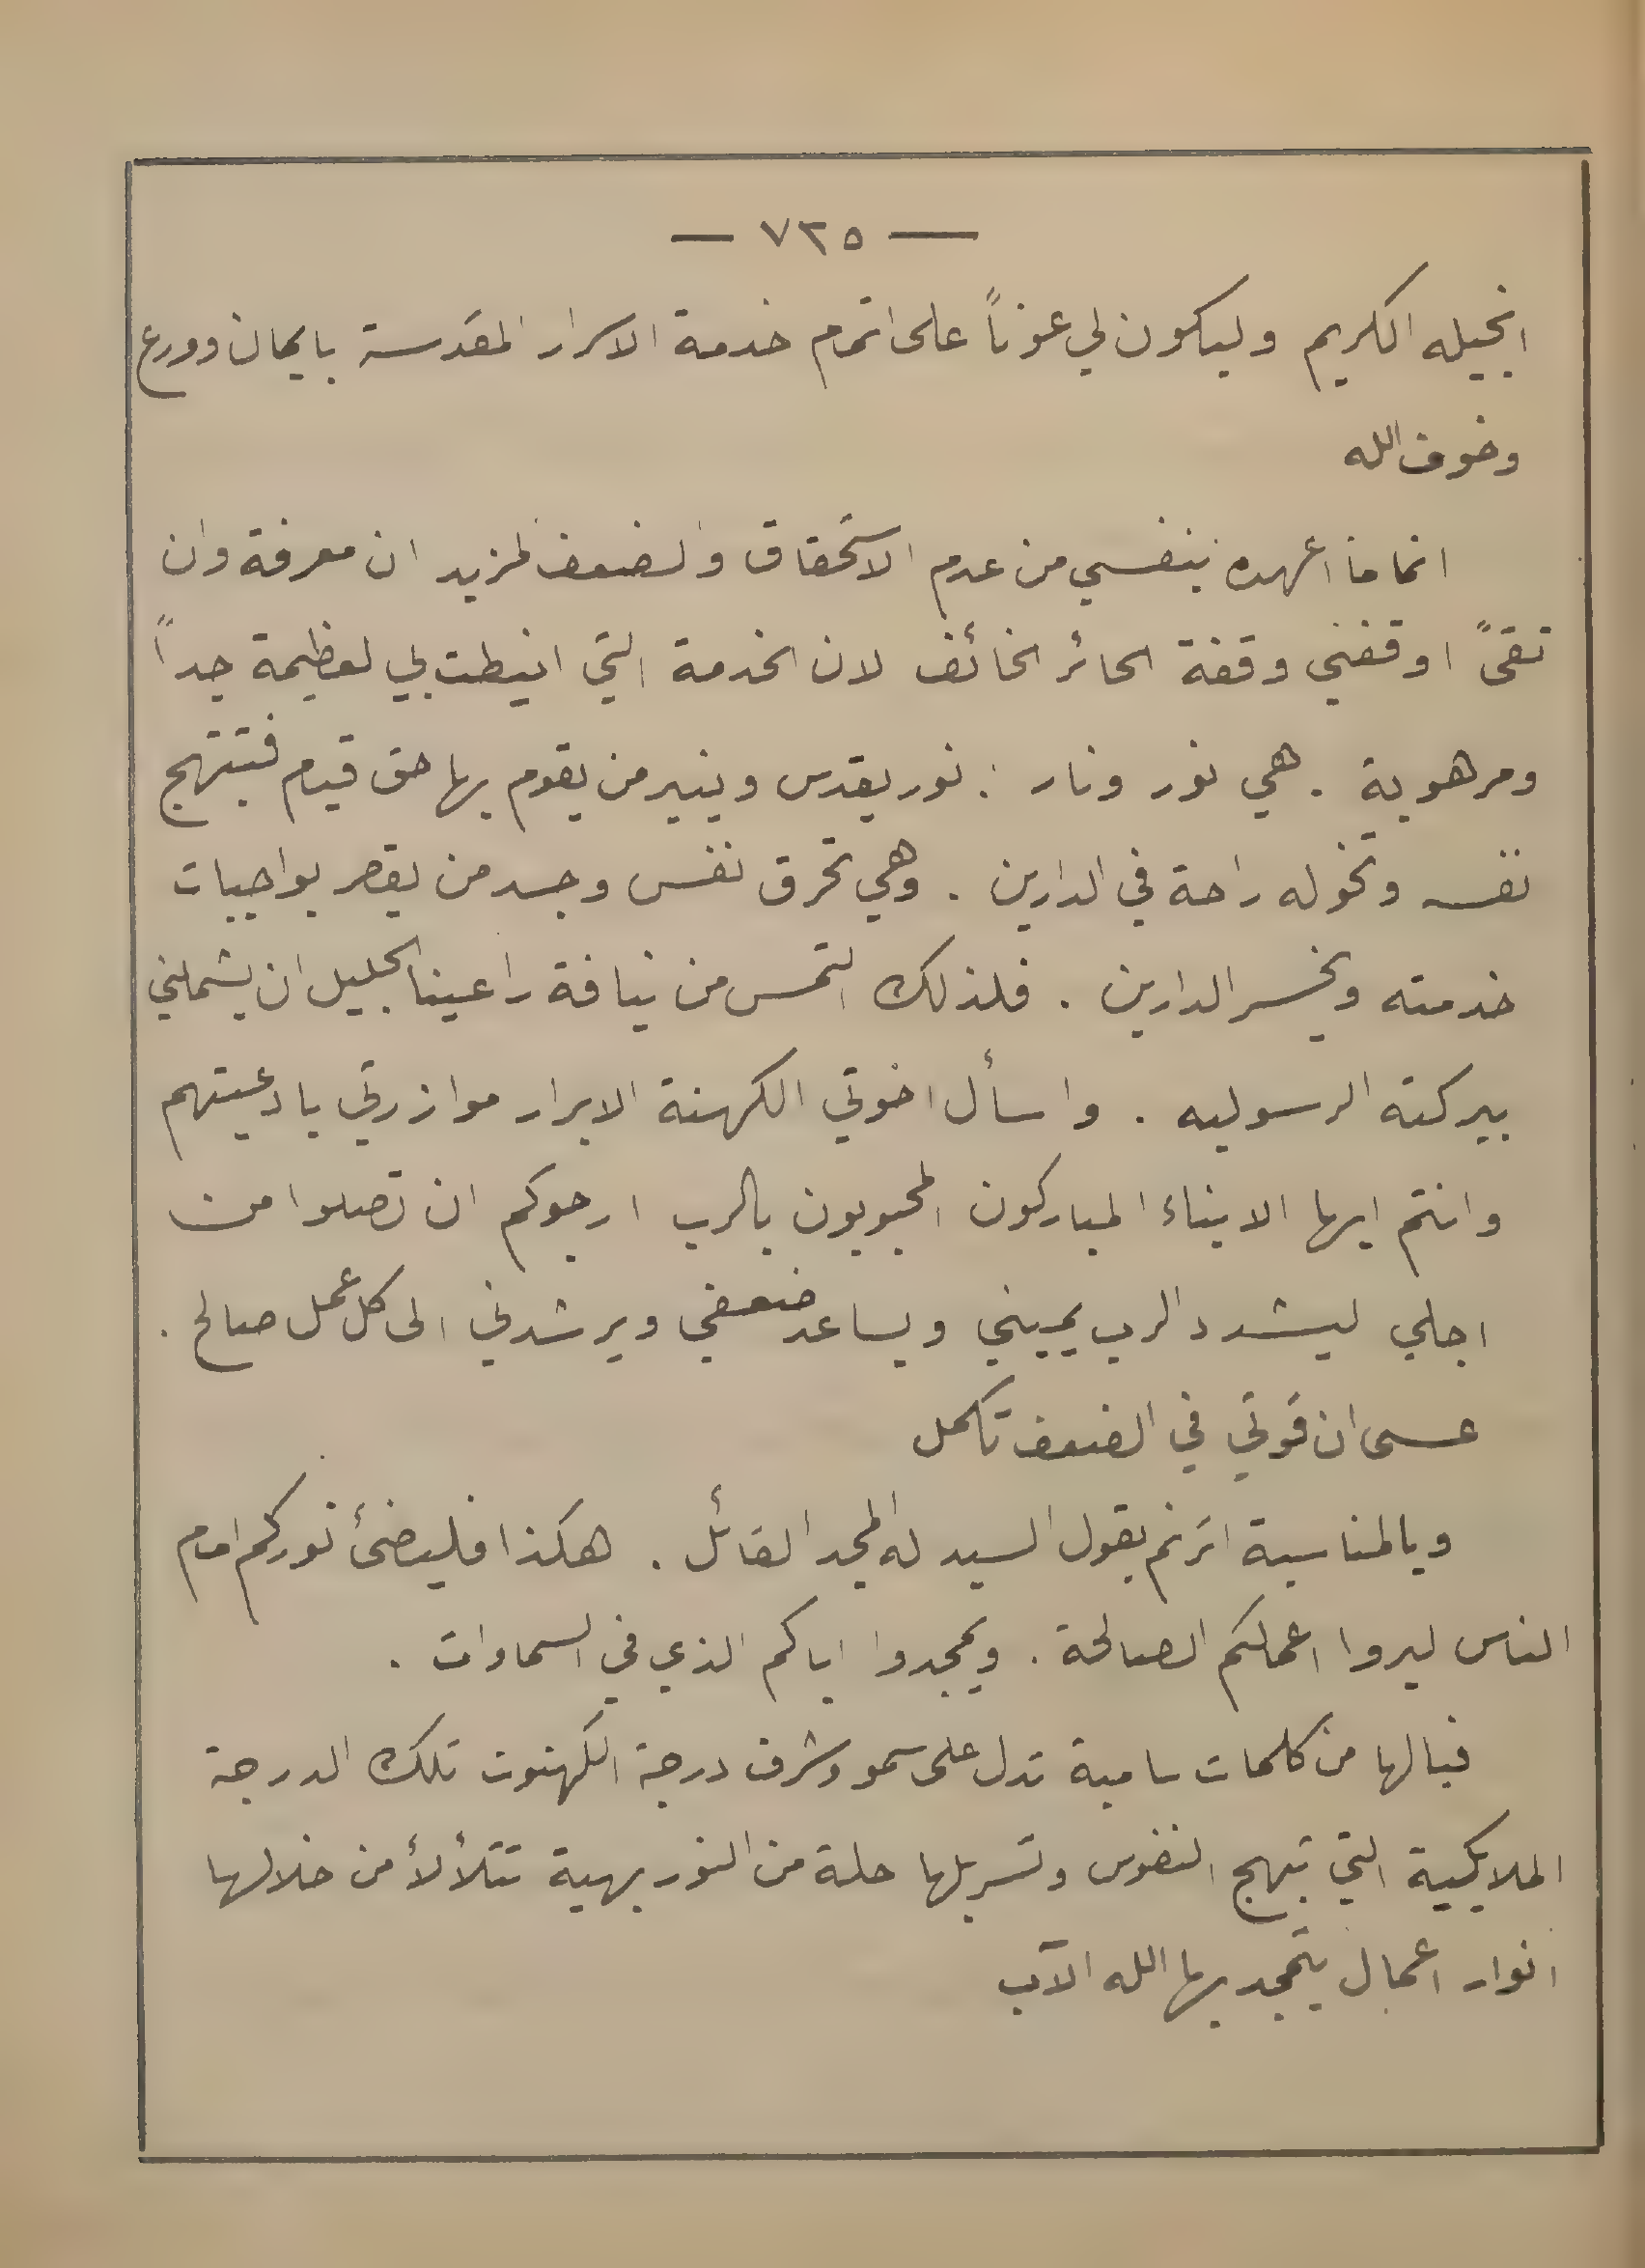 — ٧٣٥ —
انجيله الكريم وليكون لي عوناً على اتمام خدمة الاسرار المقدسة بايمان وورع
وخوف الله
انما ما اعهده بنفسي من عدم الاستحقاق والضعف لمزيد ان معرفة وان
تقىً اوقفني وقفة الحائر الخائف لان الخدمة التي انيطت بي لعظيمة جداً
ومرهوبة . هي نور ونار : نور يقدس وينير من يقوم بها حق قيام فتبتهج
نفسه وتخوله راحة في الدارين . وهي تحرق نفس وجسد من يقصر بواجبات
خدمته ويخسر الدارين . فلذلك التمس من نيافة راعينا الجليل ان يشملني
ببركته الرسوليه . واسأل اخوتي الكهنة الابرار موازرتي بادعيتهم
وانتم ايها الابناء المباركون المحبوبون بالرب ارجوكم ان تصلوا من
اجلي ليشدد الرب يميني ويساعد ضعفي ويرشدني الى كل عمل صالح .
عسى ان قوتي في الضعف تكمل
وبالمناسبة اترنم بقول السيد له المجد القائل . هكذا فليضئ نوركم امام
الناس ليروا اعملكم الصالحة . ويمجدوا اباكم الذي في السماوات .
فيالها من كلمات سامية تدل على سمو وشرف درجة الكهنوت تلك الدرجة
الملايكية التي تبهج النفوس وتسربلها حلة من النور بهية تتلألأ من خلالها
انوار اعمال يتمجد بها الله الآب